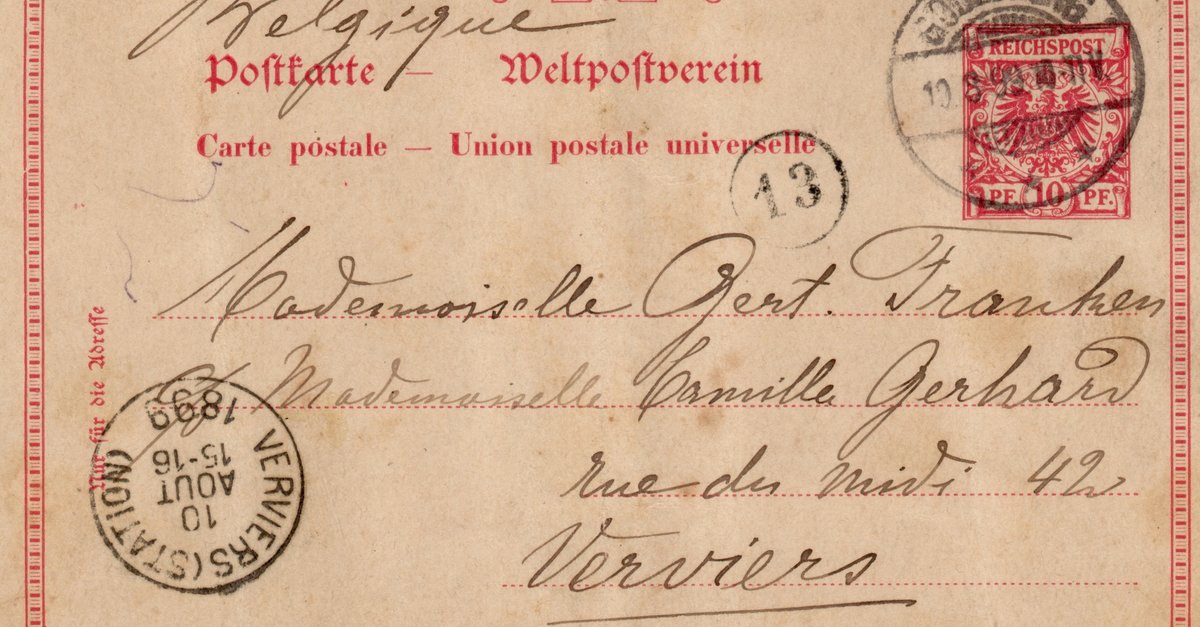 Belgique
Postkarte — Weltpostverein
Carte postale — Union postale universelle
REICHSPOST
10 PF. PF.
13
Mademoiselle Gert. Franken
c/ Mademoiselle Camilla Gerhard
rue du midi 42
Verviers
Nur für die Adresse
VERVIERS (STATION)
10
AOUT
15-16
1899